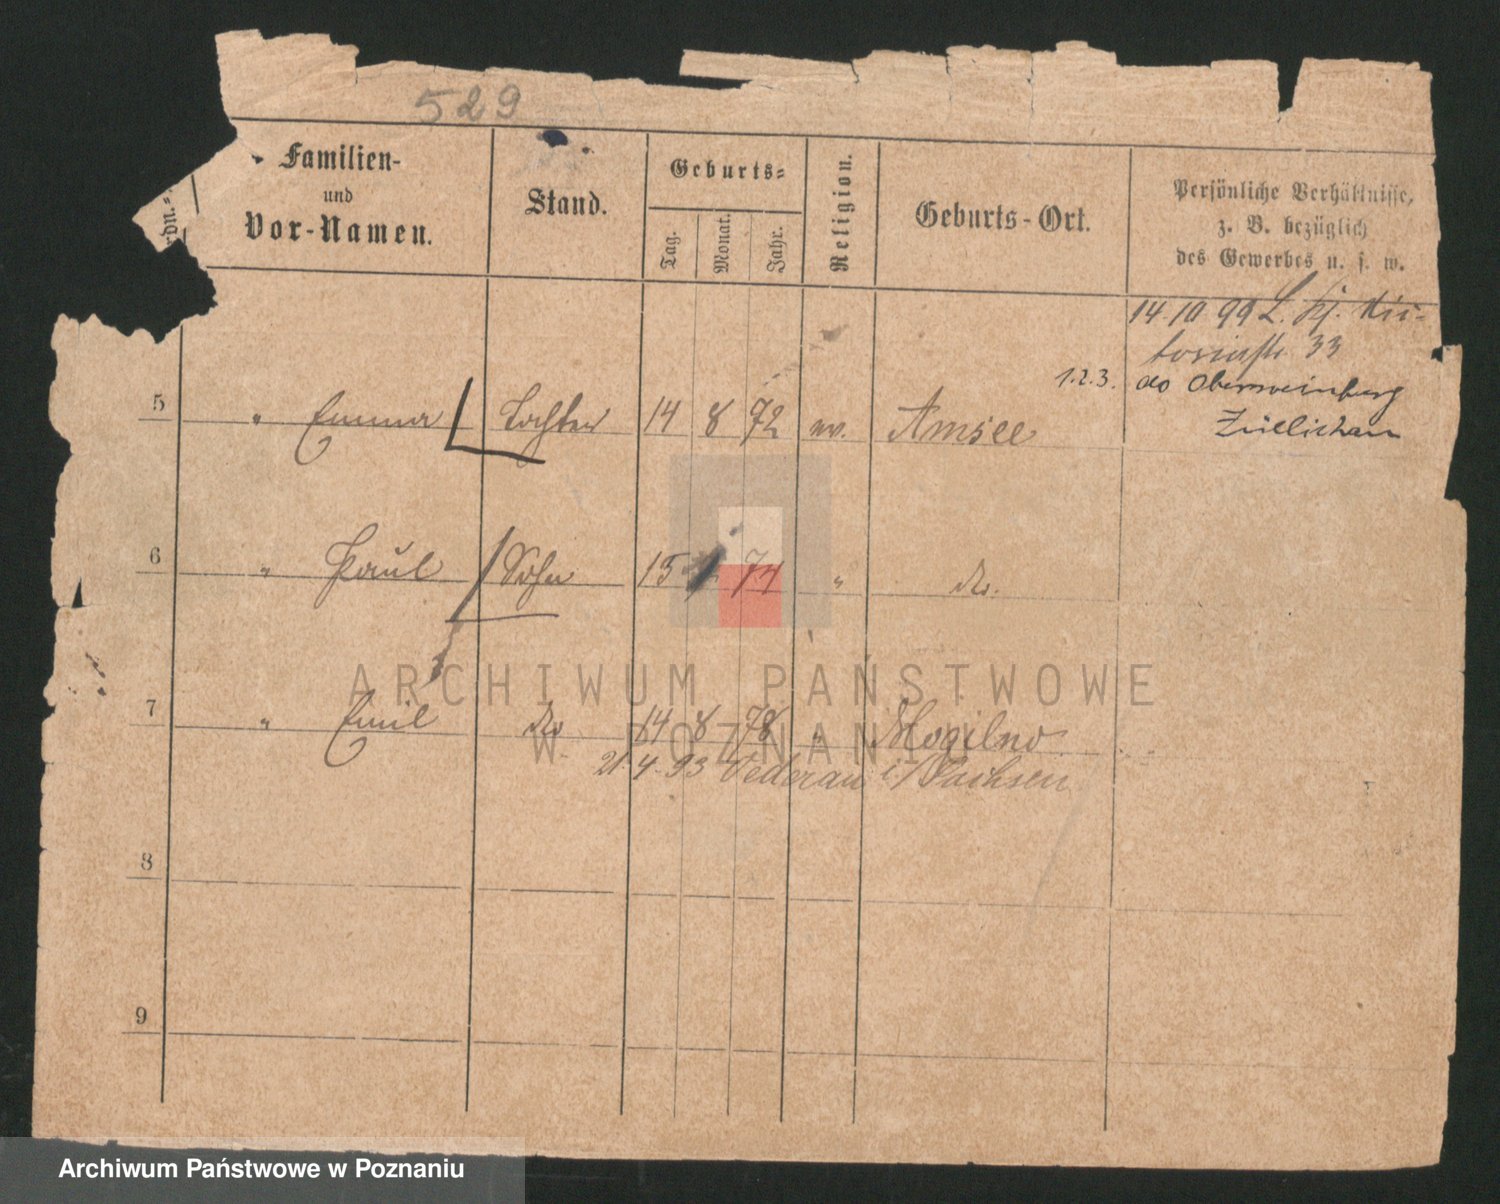 529
Familien-
und
Vor-Namen.
Stand.
Geburts-
Tag.
Monat.
Jahr.
Religion.
Geburts-Ort.
Persönliche Verhältnisse,
z. B. bezüglich
des Gewerbes u. s. w.
14.10 99 L.
33
1.2.3. do Oberweinberg
Züllichau
5 " Emma Tochter 14 8 72 ev. Amsee
6 " Paul Sohn 15 74 " do.
7 " Emil do 14 8 78 " Mogilno
21.4.93 Oederan i/Sachsen
8
9
ARCHIWUM PAŃSTWOWE
W POZNANIU
Archiwum Państwowe w Poznaniu